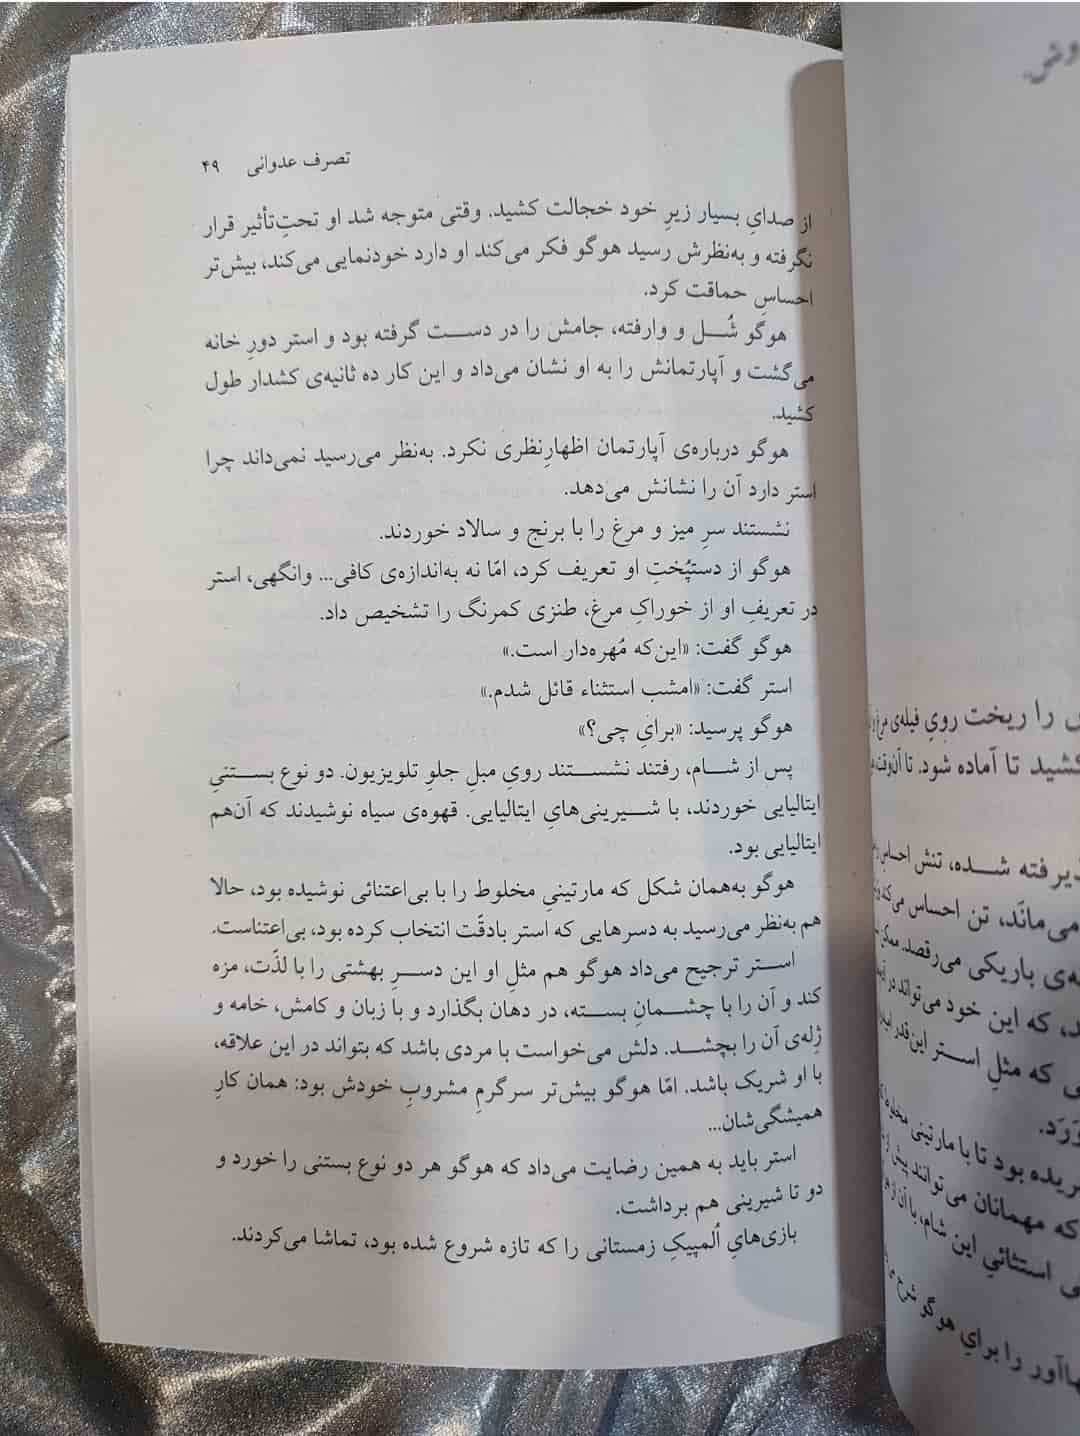 تصرف عدوانی ۴۹
از صدایِ بسیار زیرِ خود خجالت کشید. وقتی متوجه شد او تحتِ‌تأثیر قرار
نگرفته و به‌نظرش رسید هوگو فکر می‌کند او دارد خودنمایی می‌کند، بیش‌تر
احساسِ حماقت کرد.
هوگو شُل و وارفته، جامش را در دست گرفته بود و استر دورِ خانه
می‌گشت و آپارتمانش را به او نشان می‌داد و این کار ده ثانیه‌ی کشدار طول
کشید.
هوگو درباره‌ی آپارتمان اظهارِنظری نکرد. به‌نظر می‌رسید نمی‌داند چرا
استر دارد آن را نشانش می‌دهد.
نشستند سرِ میز و مرغ را با برنج و سالاد خوردند.
هوگو از دستپُختِ او تعریف کرد، امّا نه به‌اندازه‌ی کافی... وانگهی، استر
در تعریفِ او از خوراکِ مرغ، طنزی کمرنگ را تشخیص داد.
هوگو گفت: «این‌که مُهره‌دار است.»
استر گفت: «امشب استثناء قائل شدم.»
هوگو پرسید: «برایِ چی؟»
پس از شام، رفتند نشستند رویِ مبلِ جلوِ تلویزیون. دو نوع بستنیِ
ایتالیایی خوردند، با شیرینی‌هایِ ایتالیایی. قهوه‌ی سیاه نوشیدند که آن‌هم
ایتالیایی بود.
هوگو به‌همان شکل که مارتینیِ مخلوط را با بی‌اعتنائی نوشیده بود، حالا
هم به‌نظر می‌رسید به دسرهایی که استر بادقّت انتخاب کرده بود، بی‌اعتناست.
استر ترجیح می‌داد هوگو هم مثلِ او این دسرِ بهشتی را با لذّت، مزه
کند و آن را با چشمانِ بسته، در دهان بگذارد و با زبان و کامش، خامه و
ژله‌ی آن را بچشد. دلش می‌خواست با مردی باشد که بتواند در این علاقه،
با او شریک باشد. امّا هوگو بیش‌تر سرگرمِ مشروبِ خودش بود: همان کارِ
همیشگی‌شان...
استر باید به همین رضایت می‌داد که هوگو هر دو نوع بستنی را خورد و
دو تا شیرینی هم برداشت.
بازی‌هایِ اُلمپیکِ زمستانی را که تازه شروع شده بود، تماشا می‌کردند.
را ریخت رویِ فیله‌ی مرغ
تا آماده شود. تا آن‌وقت
شده، تنش احساسِ
می‌مانَد، تن احساس می‌کند
باریکی می‌رقصد. ممکن
که این خود می‌تواند در
که مثلِ استر این‌قدر
بود تا با مارتینی مخلوط
که مهمانان می‌توانند پیش از
استثنائیِ این شام، با آن از
را برایِ هوگو شرح